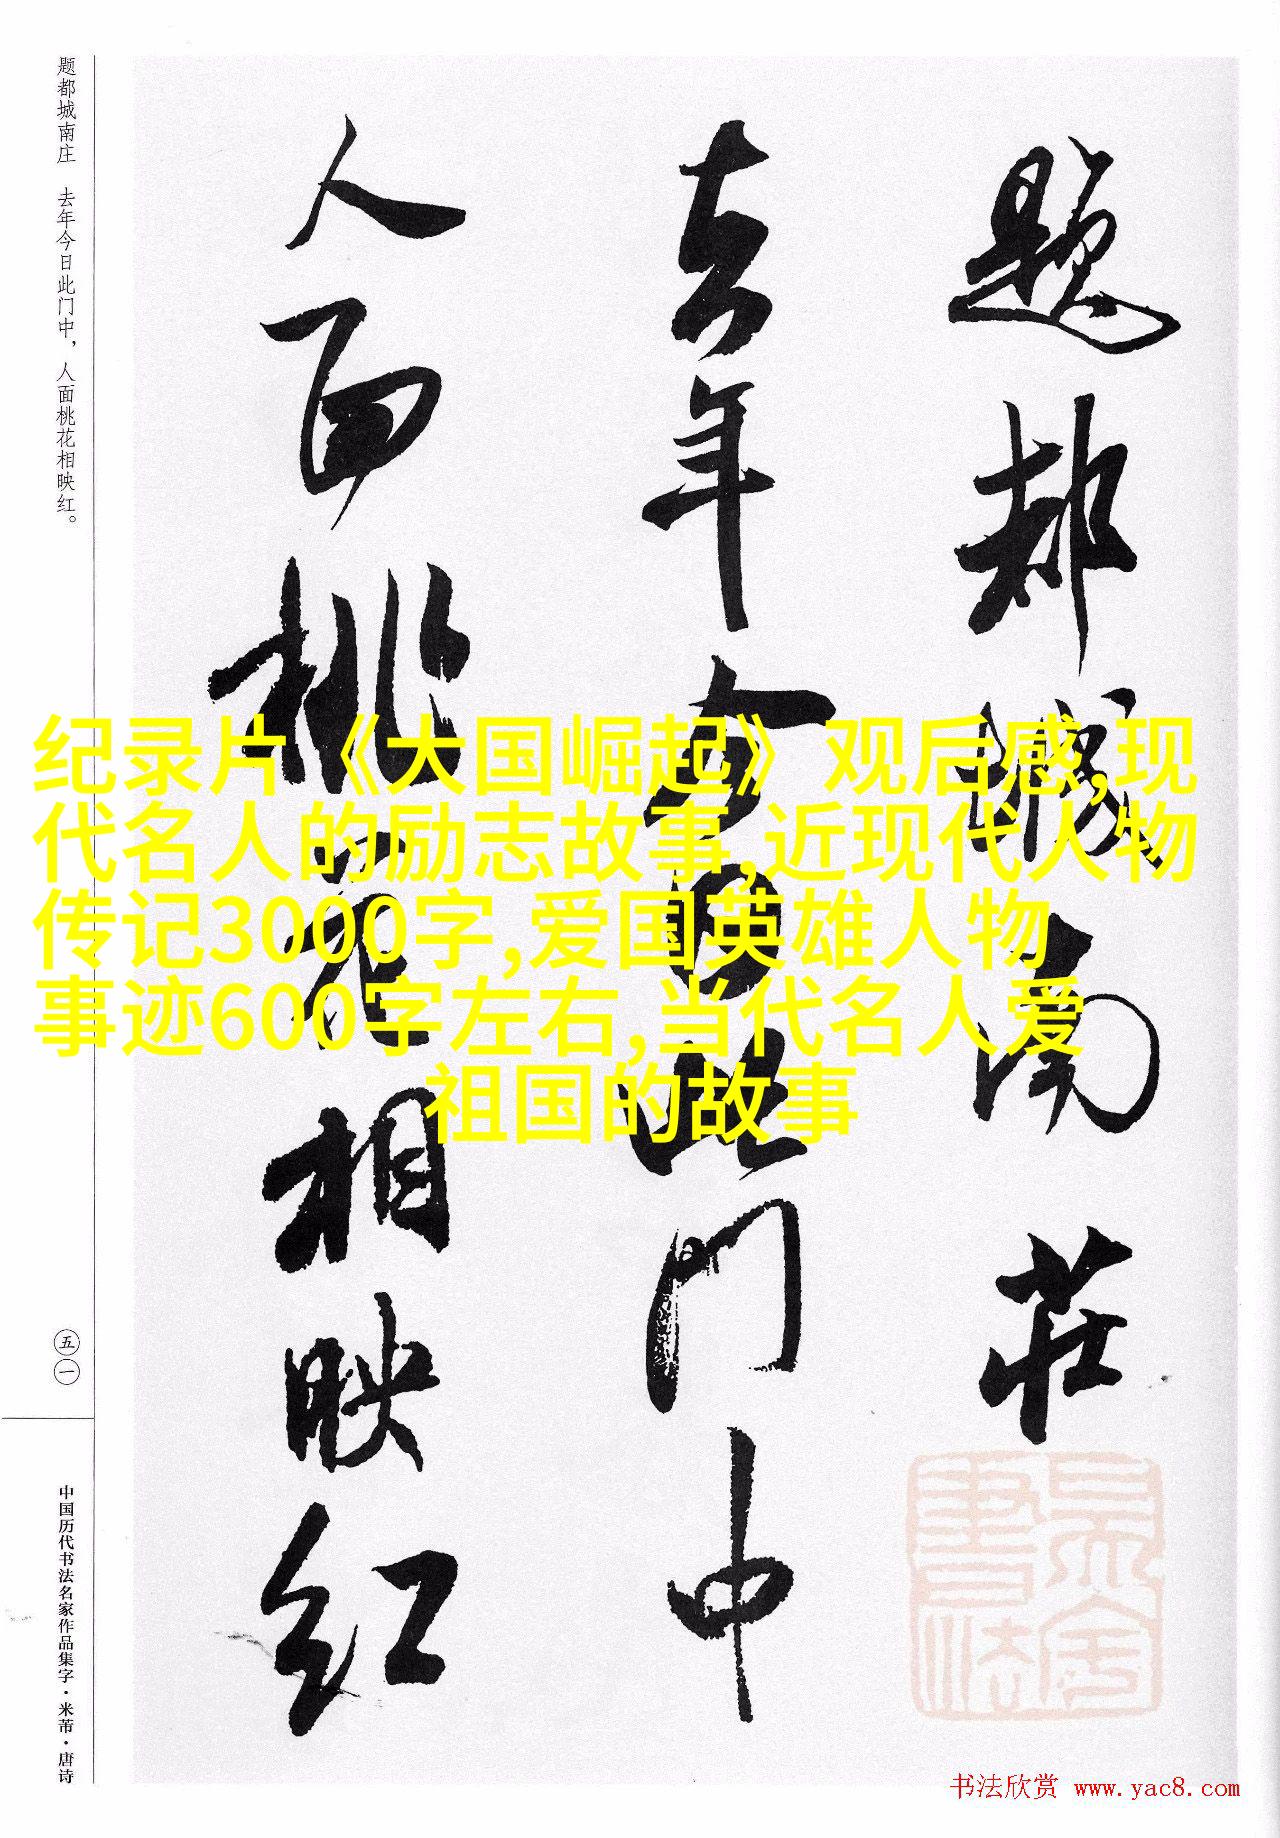 题都城南庄
去年今日此门中
人面桃花相映红
题都城南庄 去年今日此门中，人面桃花相映红。
五一
中国历代书法名家作品集字·米芾·唐诗
纪录片《大国崛起》观后感,现
代名人的励志故事,近现代人物
传记3000字,爱国英雄人物
事迹600字左右,当代名人爱
祖国的故事
书法欣赏 www.yac8.com